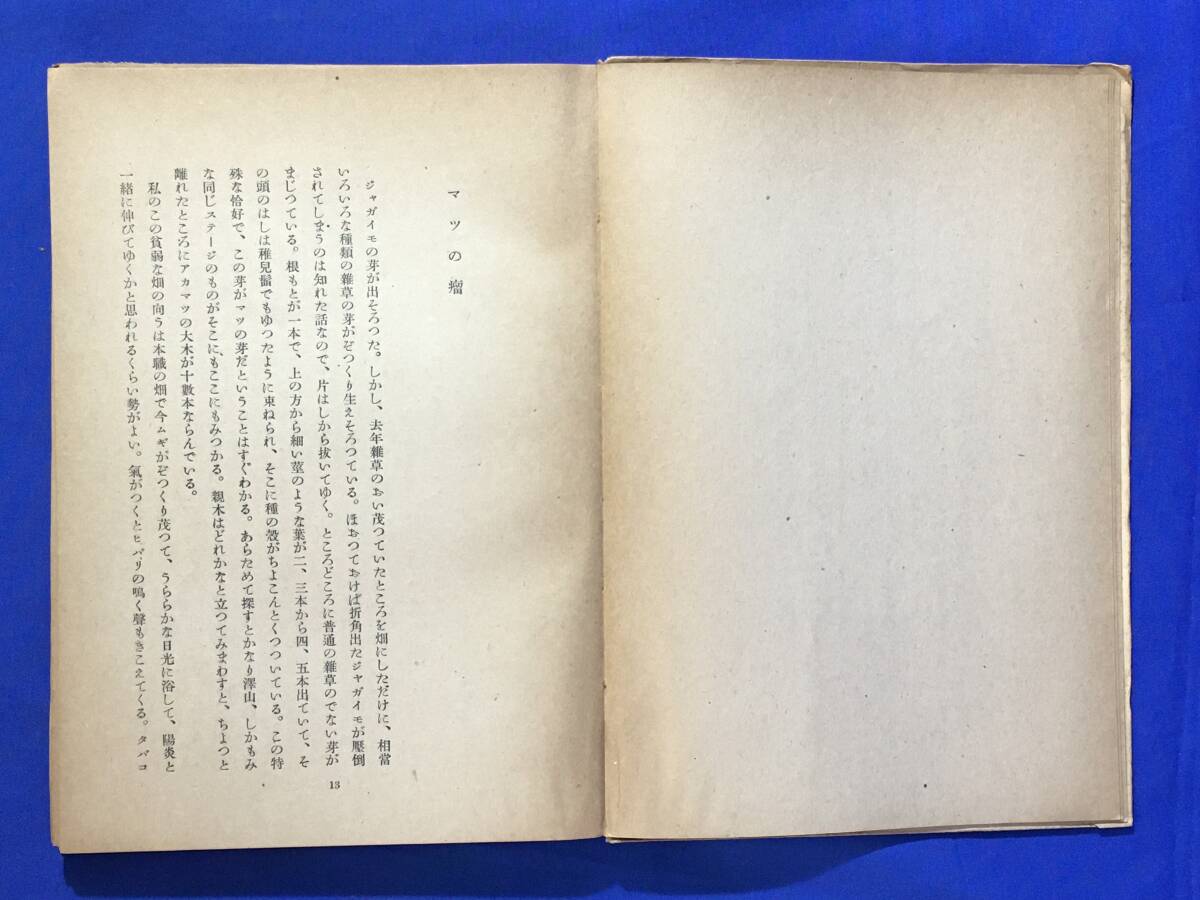 マツの瘤
ジャガイモの芽が出そろつた。しかし、去年雜草のおい茂つていたところを畑にしただけに、相當
いろいろな種類の雜草の芽がぞつくり生えそろつている。ほおつておけば折角出たジャガイモが壓倒
されてしまうのは知れた話なので、片はしから拔いてゆく。ところどころに普通の雜草のでない芽が
まじつている。根もとが一本で、上の方から細い莖のような葉が二、三本から四、五本出ていて、そ
の頭のはしは稚兒髷でもゆつたように束ねられ、そこに種の殼がちよこんとくつついている。この特
殊な恰好で、この芽がマツの芽だということはすぐわかる。あらためて探すとかなり澤山、しかもみ
な同じステージのものがそこにもここにもみつかる。親木はどれかなと立つてみまわすと、ちよつと
離れたところにアカマツの大木が十數本ならんでいる。
私のこの貧弱な畑の向うは本職の畑で今ムギがぞつくり茂つて、うららかな日光に浴して、陽炎と
一緒に伸びてゆくかと思われるくらい勢がよい。氣がつくとヒバリの鳴く聲もきこえてくる。タバコ
13